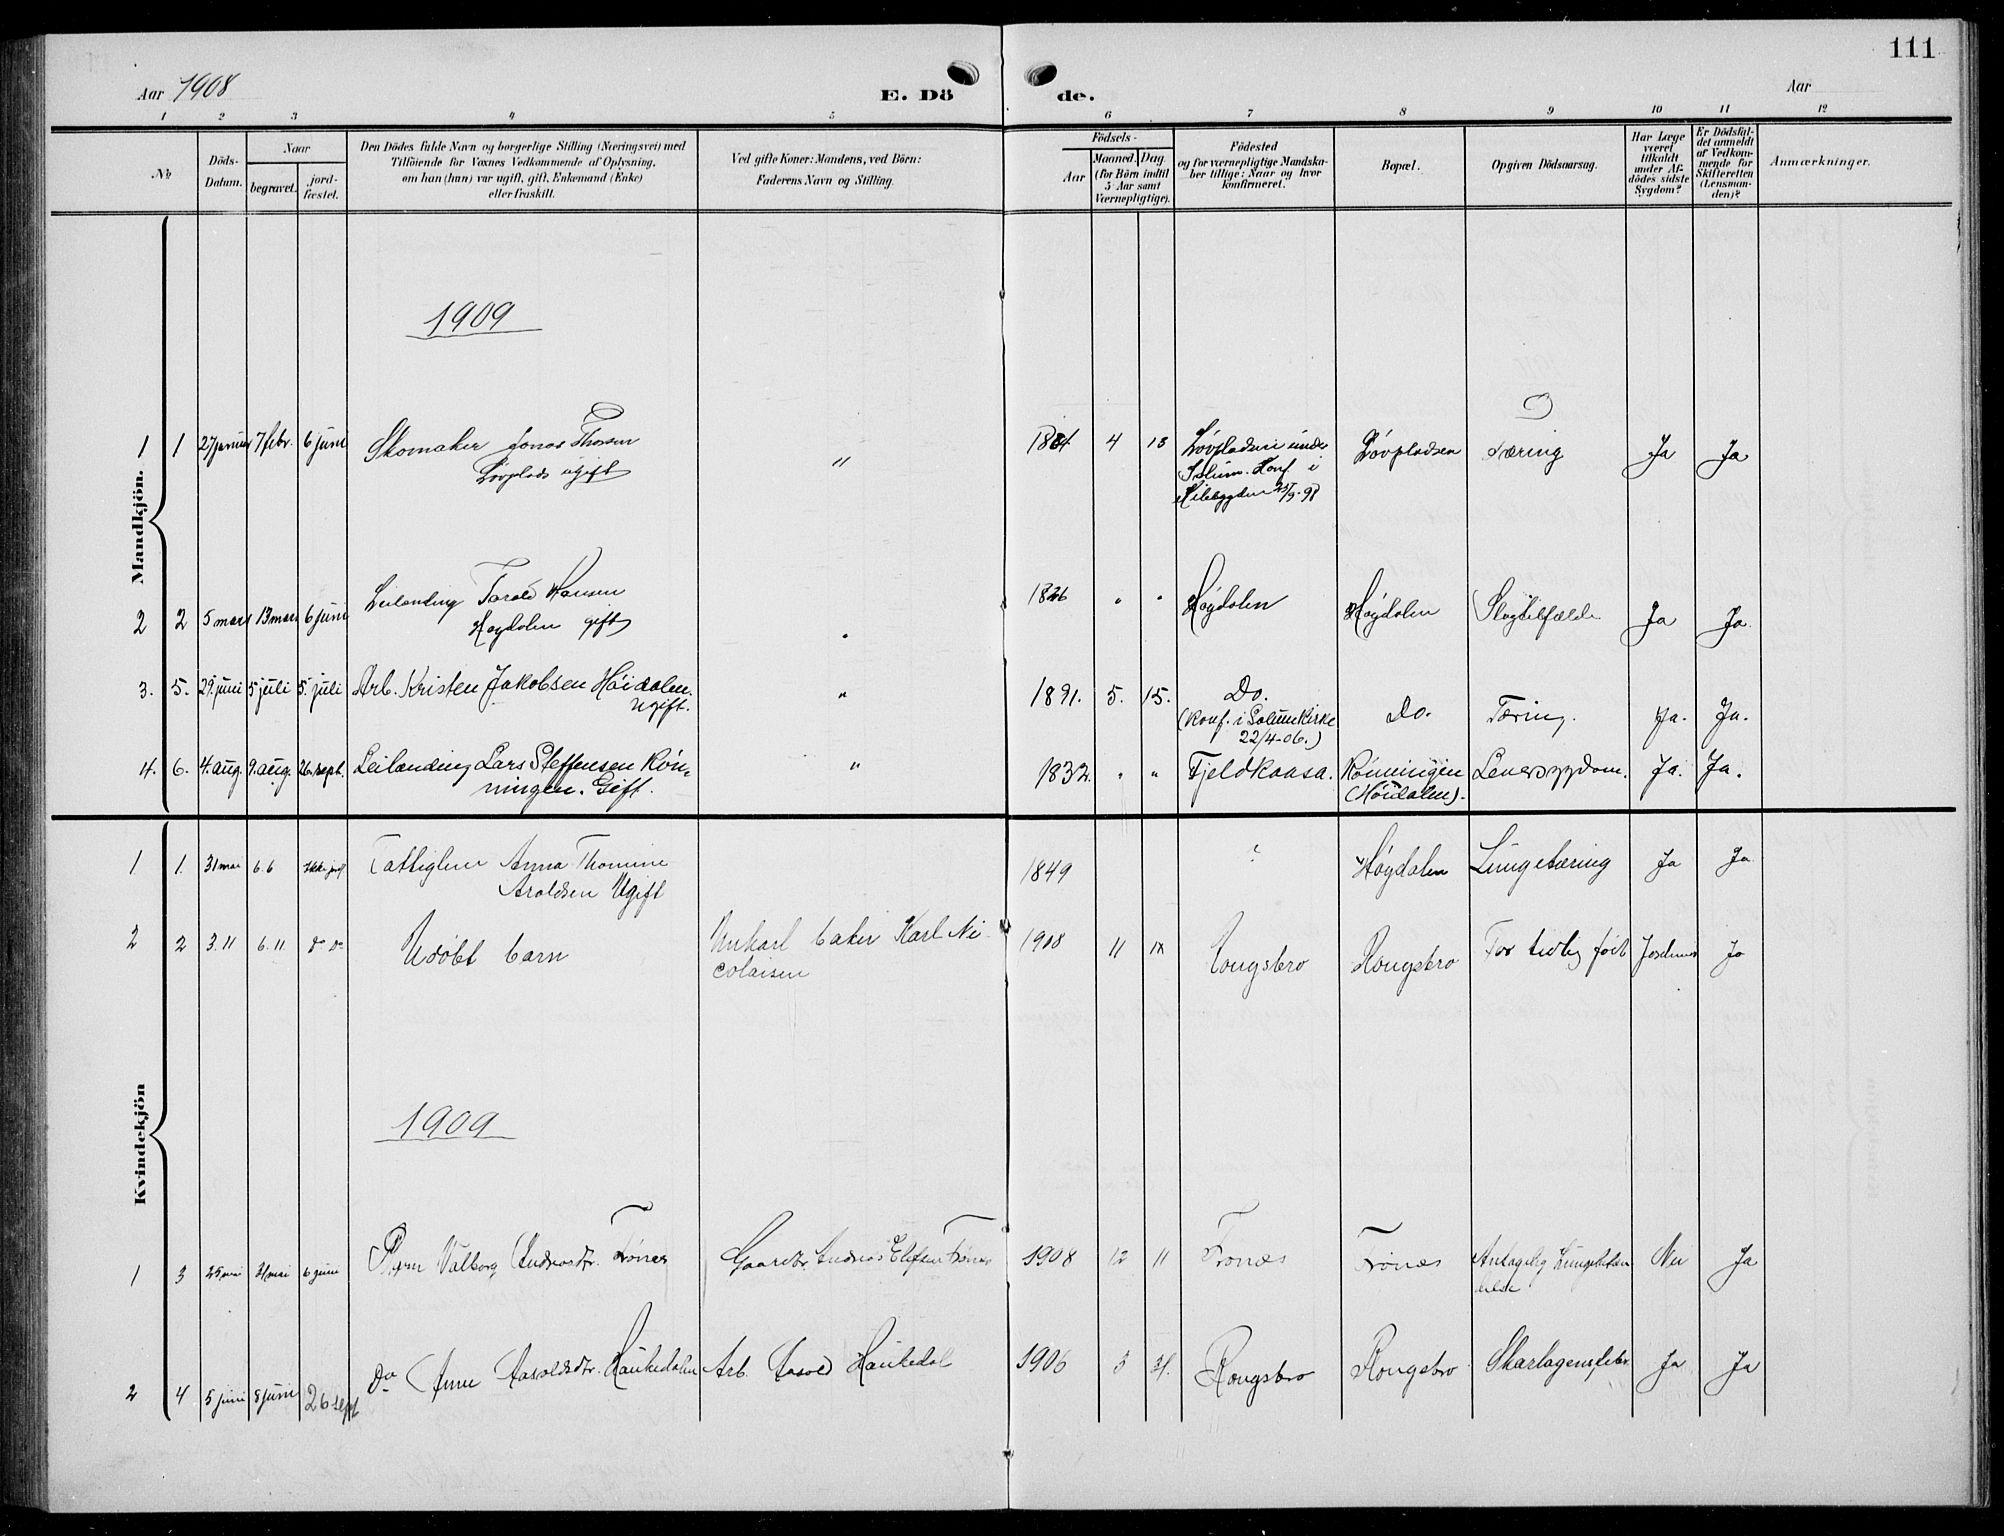 111
Aar 1908
E. Dö de.
Aar
1 2 3 4 5 6 7 8 9 10 11 12
No
Döds-Datum.
Naar
begravet.
jord-fæstet.
Den Dödes fulde Navn og borgerlige Stilling (Næringsvei) med
Tilföiende for Voxnes Vedkommende af Oplysning,
om han (hun) var ugift, gift, Enkemand (Enke)
eller fraskilt.
Ved gifte Koner: Mandens, ved Börn:
Faderens Navn og Stilling.
Födsels-
Aar
Maaned. Dag.
(for Börn indtil
5 Aar samt
Værnepligtige).
Födested
og for værnepligtige Mandska-
ber tillige: Naar og hvor
konfirmeret.
Bopæl.
Opgiven Dödsaarsag.
Har Læge
været
tilkaldt
under Af-
dödes sidste
Sygdom?
Er Dödsfal-
det anmeldt
af Vedkom-
mende for
Skifteretten
(Lensman-
den)?
Anmærkninger.
Mandkjön.
1909
1 1 27 januar 7 febr. 6 juni Skomaker Jonas Thorsen
Lövplads ugift
" 1884 4 13 Lövpladsen under
Solum. Konf. i
Kilebygden 25/9-98
Lövpladsen Tæring Ja Ja
2 2 5 mars 13 mars 6 juni Leilending Torold Hansen
Høgdalen gift
" 1826 " " Høgdalen Høgdalen Slagtilfælde Ja Ja.
3. 5. 29. juni 5 juli 5. juli Arb. Kristen Jakobsen Höidalen.
Ugift.
" 1891. 5. 15. Do.
(Konf. i Solum Kirke
22/4-06.)
Do. Tæring. Ja. Ja.
4. 6. 4. aug. 9. aug. 26. sept. Leilending Lars Steffensen Rön-
ningen. Gift.
" 1832. " " Fjeldkaasa. Rönningen
(Höidalen).
Leversygdom. Ja. Ja.
Kvindekjön
1 1. 31 mai 6.6 Ikke jordf. Fattiglem Anna Thomine
Aroldsen Ugift
1849 ? Høgdalen Lungetæring Ja Ja
2 2 3. 11 6. 11 do Do Udöbt barn
baker Karl Ni-
colaisen
1908 11 Rongsbro Rongsbro For tidlig födt Jordmor Ja
1909
1 3 25 mai 31 mai 6 juni Valborg Andreasdtr. Frönes
Gaardbr. Andreas Elefsen Frönes 1908 12 11 Frönæs Frönæs Antagelig Lungebetæn-
delse
Nei Ja
2 4 5 juni 8 juni 26 sept Do Anne Aasoldsdtr. Haukedalen Arb. Aasold Haukedal 1906 3 31. Rongsbro Rongsbro Skarlagensfeber Ja Ja